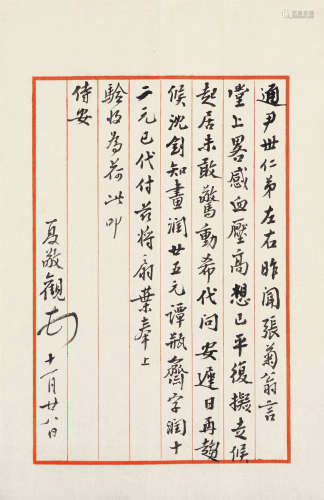 通尹世仁弟左右昨聞張菊翁言
堂上畧感血壓高想已平復擬走候
起居未敢驚動希代問安遲日再趨
候沈劍知畫潤廿五元譚瓶齋字潤十
二元已代付茲將扇葉奉上
驗收為荷此叩
侍安
夏敬觀頓 十一月廿八日